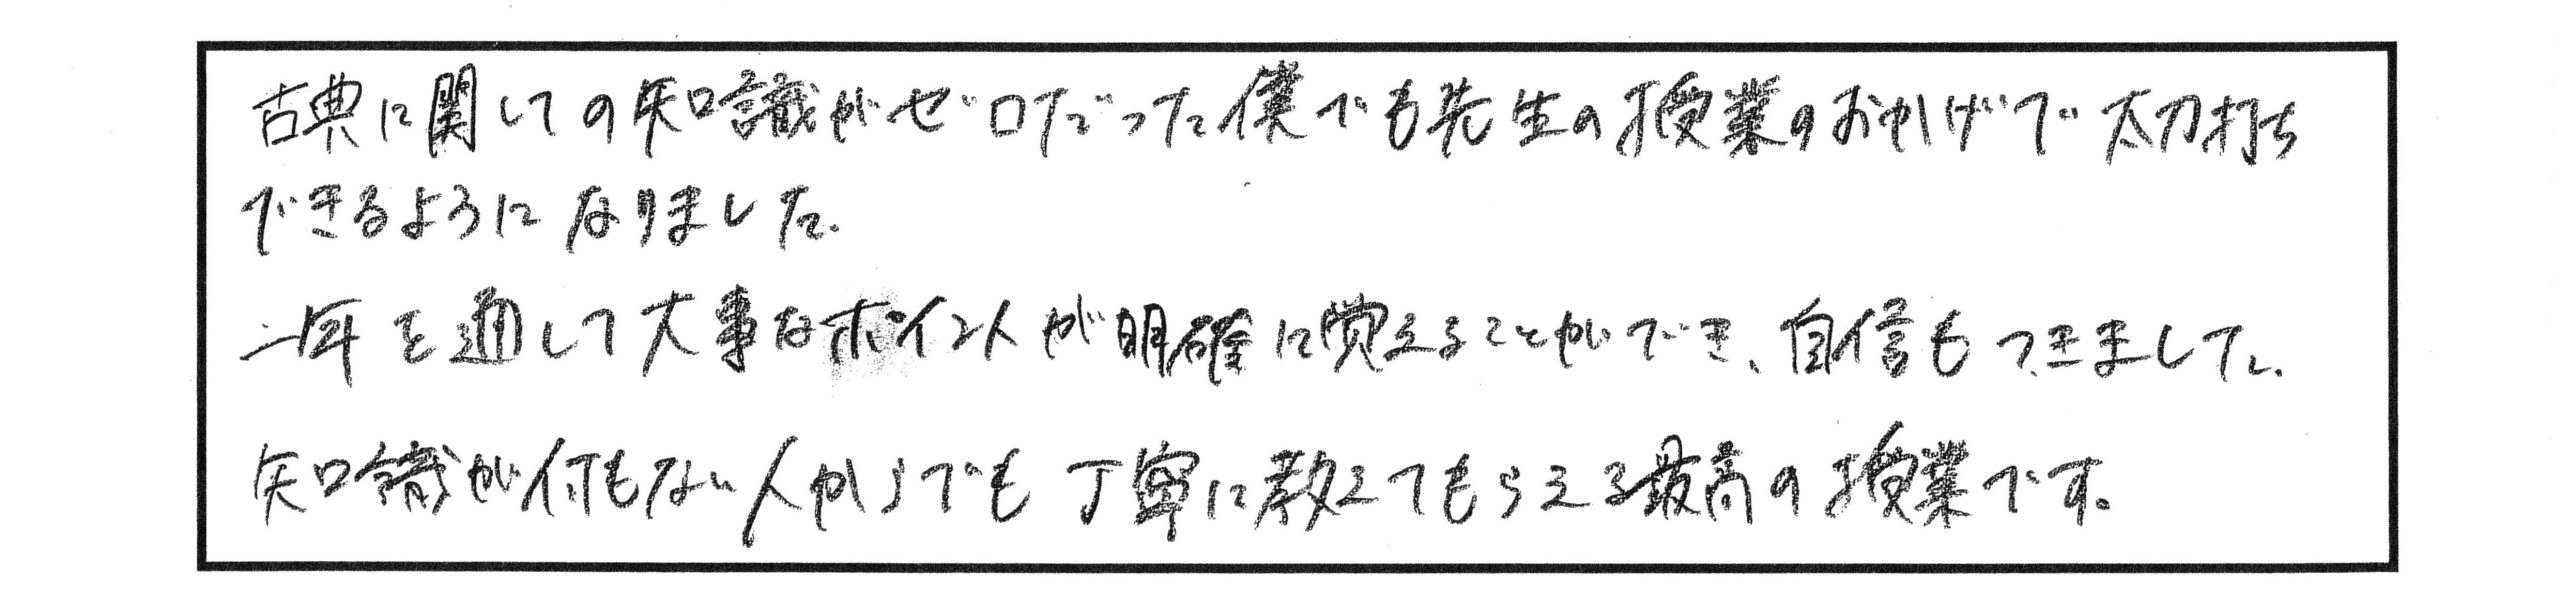 古典に関しての知識がゼロだった僕でも先生の授業のおかげで太刀打ち
できるようになりました.
一年を通して大事なポイントが明確に覚えることができ、自信もつきました.
知識が何もない人からでも丁寧に教えてもらえる最高の授業です。